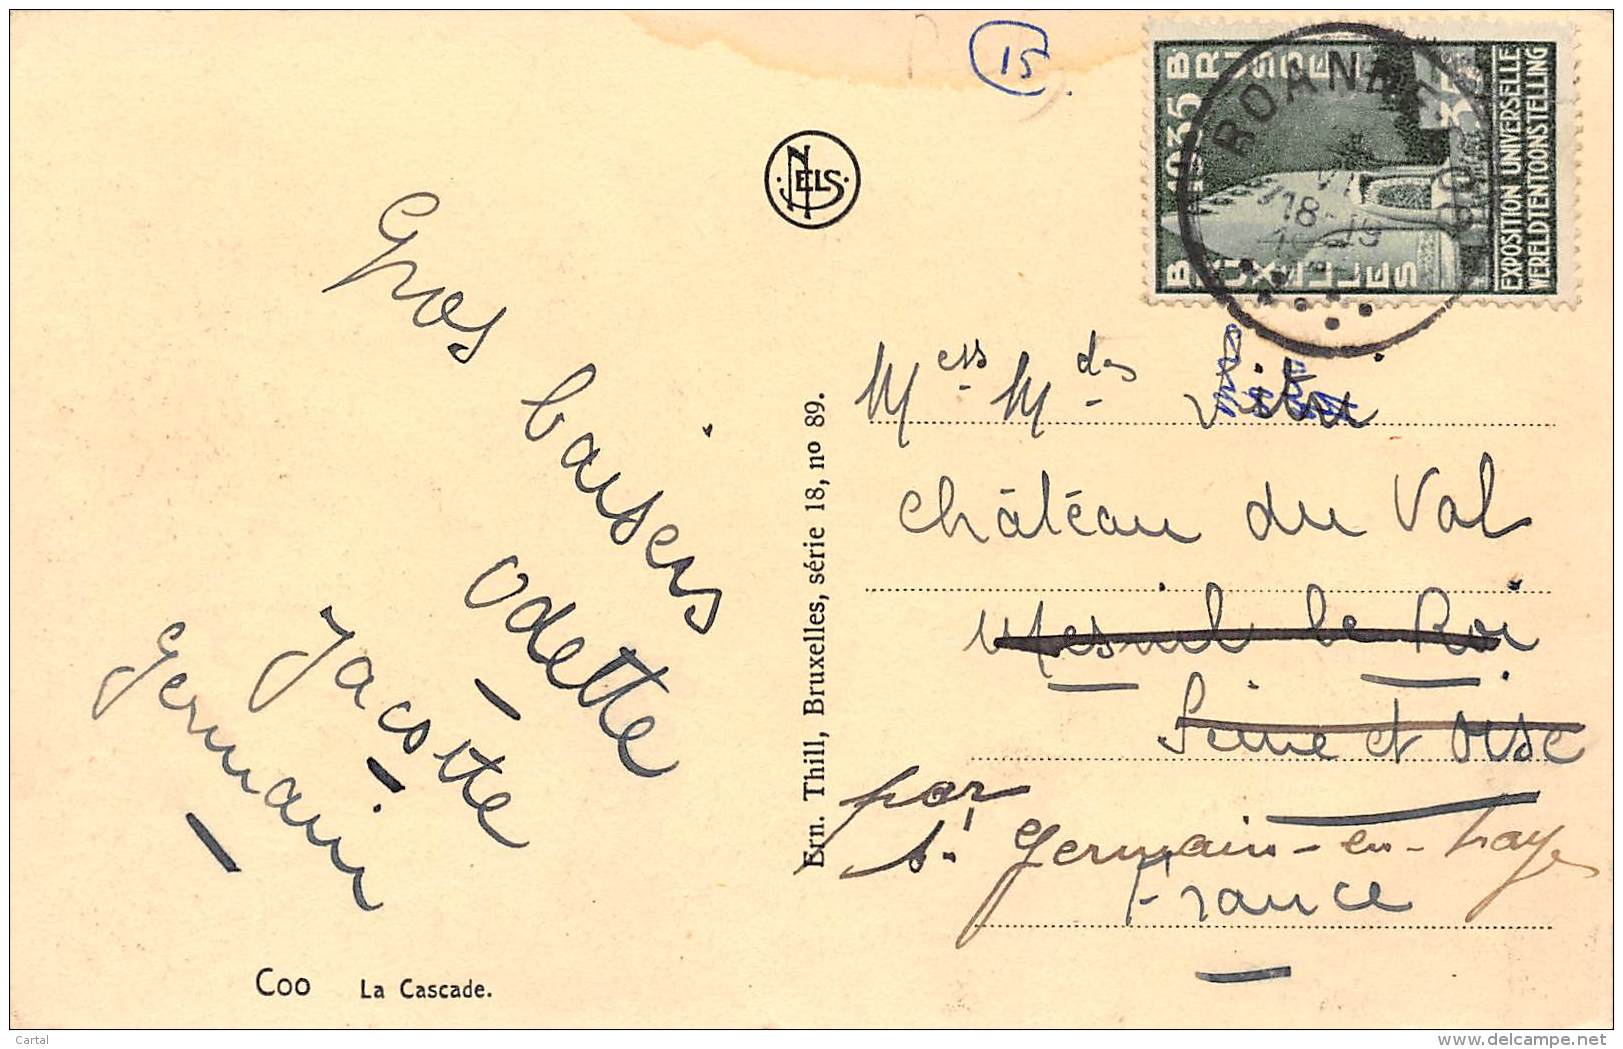 15
NELS
BRUSSEL
1935
BRUXELLES
35
EXPOSITION UNIVERSELLE
WERELDTENTOONSTELLING
ROANNE-COO
18-19
Gros baisers
Odette
Jacotte
Germain
Ern. Thill, Bruxelles, série 18, no 89.
Mess Mdes
Château du Val
Mesnil le Roi
Seine et Oise
par
St Germain-en-Laye
France
Coo La Cascade.
Cartal
www.delcampe.net